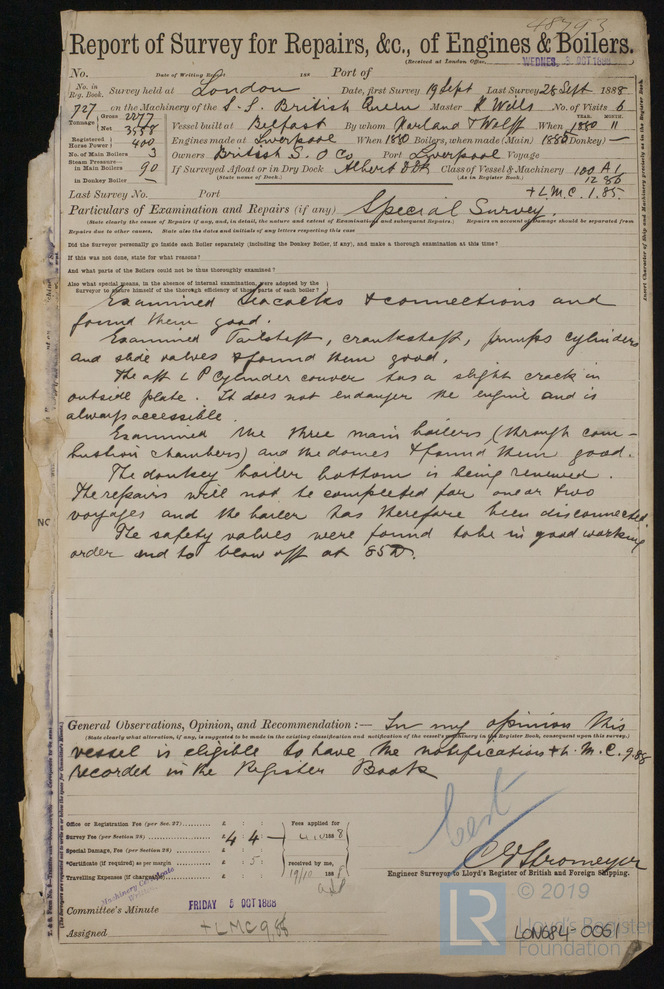 48793
Report of Survey for Repairs, &c., of Engines & Boilers.
(Received at London Office, WEDNES. 3 OCT 1888
No. Date of Writing Report 188 Port of
No. in Reg. Book. Survey held at London Date, first Survey 19 Sept Last Survey 28 Sept 1888
727 on the Machinery of the S. S. British Queen Master H Wills No. of Visits 6
Tonnage Gross 2277 Net 3558 Vessel built at Belfast By whom Harland & Wolff When YEAR. 1880 MONTH. 11
Registered Horse Power 400 Engines made at Liverpool When 1880 Boilers, when made (Main) 1880 (Donkey) —
No. of Main Boilers 3 Owners British S. O Co Port Liverpool Voyage
Steam Pressure in Main Boilers 90 If Surveyed Afloat or in Dry Dock Albert Dk Class of Vessel & Machinery 100 A1
in Donkey Boiler – (State name of Dock.) (As in Register Book.) 12.86
+ L.M.C. 1.85.
Last Survey No. Port
Particulars of Examination and Repairs (if any) Special Survey.
(State clearly the cause of Repairs if any, and, in detail, the nature and extent of Examination and subsequent Repairs.) Repairs on account of Damage should be separated from
Repairs due to other causes, State also the dates and initials of any letters respecting this case
Did the Surveyor personally go inside each Boiler separately (including the Donkey Boiler, if any), and make a thorough examination at this time?
If this was not done, state for what reasons?
And what parts of the Boilers could not be thus thoroughly examined?
Also what special means, in the absence of internal examination, were adopted by the
Surveyor to assure himself of the thorough efficiency of those parts of each boiler?
Examined Seacocks & connections and
found them good.
Examined Tailshaft, crankshaft, pumps cylinders
and slide valves & found them good.
The aft L P Cylinder couver has a slight crack in
outside plate. It does not endanger the engine and is
always accessible.
Examined the three main boilers (through com–
bustion chambers) and the domes & found them good.
The donkey boiler bottom is being renewed.
The repairs will not be completed for one or two
voyages and the boiler has therefore been disconnected.
The safety valves were found to be in good working
order and to blow off at 85 lb.
General Observations, Opinion, and Recommendation :— In my opinion this
(State clearly what alteration, if any, is suggested to be made in the existing classification and notification of the vessel's machinery in the Register Book, consequent upon this survey.)
vessel is eligible to have the notification + L. M. C. 9.88
recorded in the Register Book
Office or Registration Fee (per Sec. 27) £ : : Fees applied for
Survey Fee (per Section 28) £ 4 4 – 188 8
Special Damage, Fee (per Section 28) £ : :
*Certificate (if required) as per margin £ : 5 : received by me,
Travelling Expenses (if chargeable) £ : : 19/10 188 8
Cert
C E Stromeyer
Engineer Surveyor to Lloyd's Register of British and Foreign Shipping.
Machinery Certificate
Committee's Minute FRIDAY 5 OCT 1888
Assigned + LMC 9.88
LR © 2019
Lloyd's Register
Foundation
LON684-0061
Insert Character of Ship and Machinery precisely as in the Register Book.